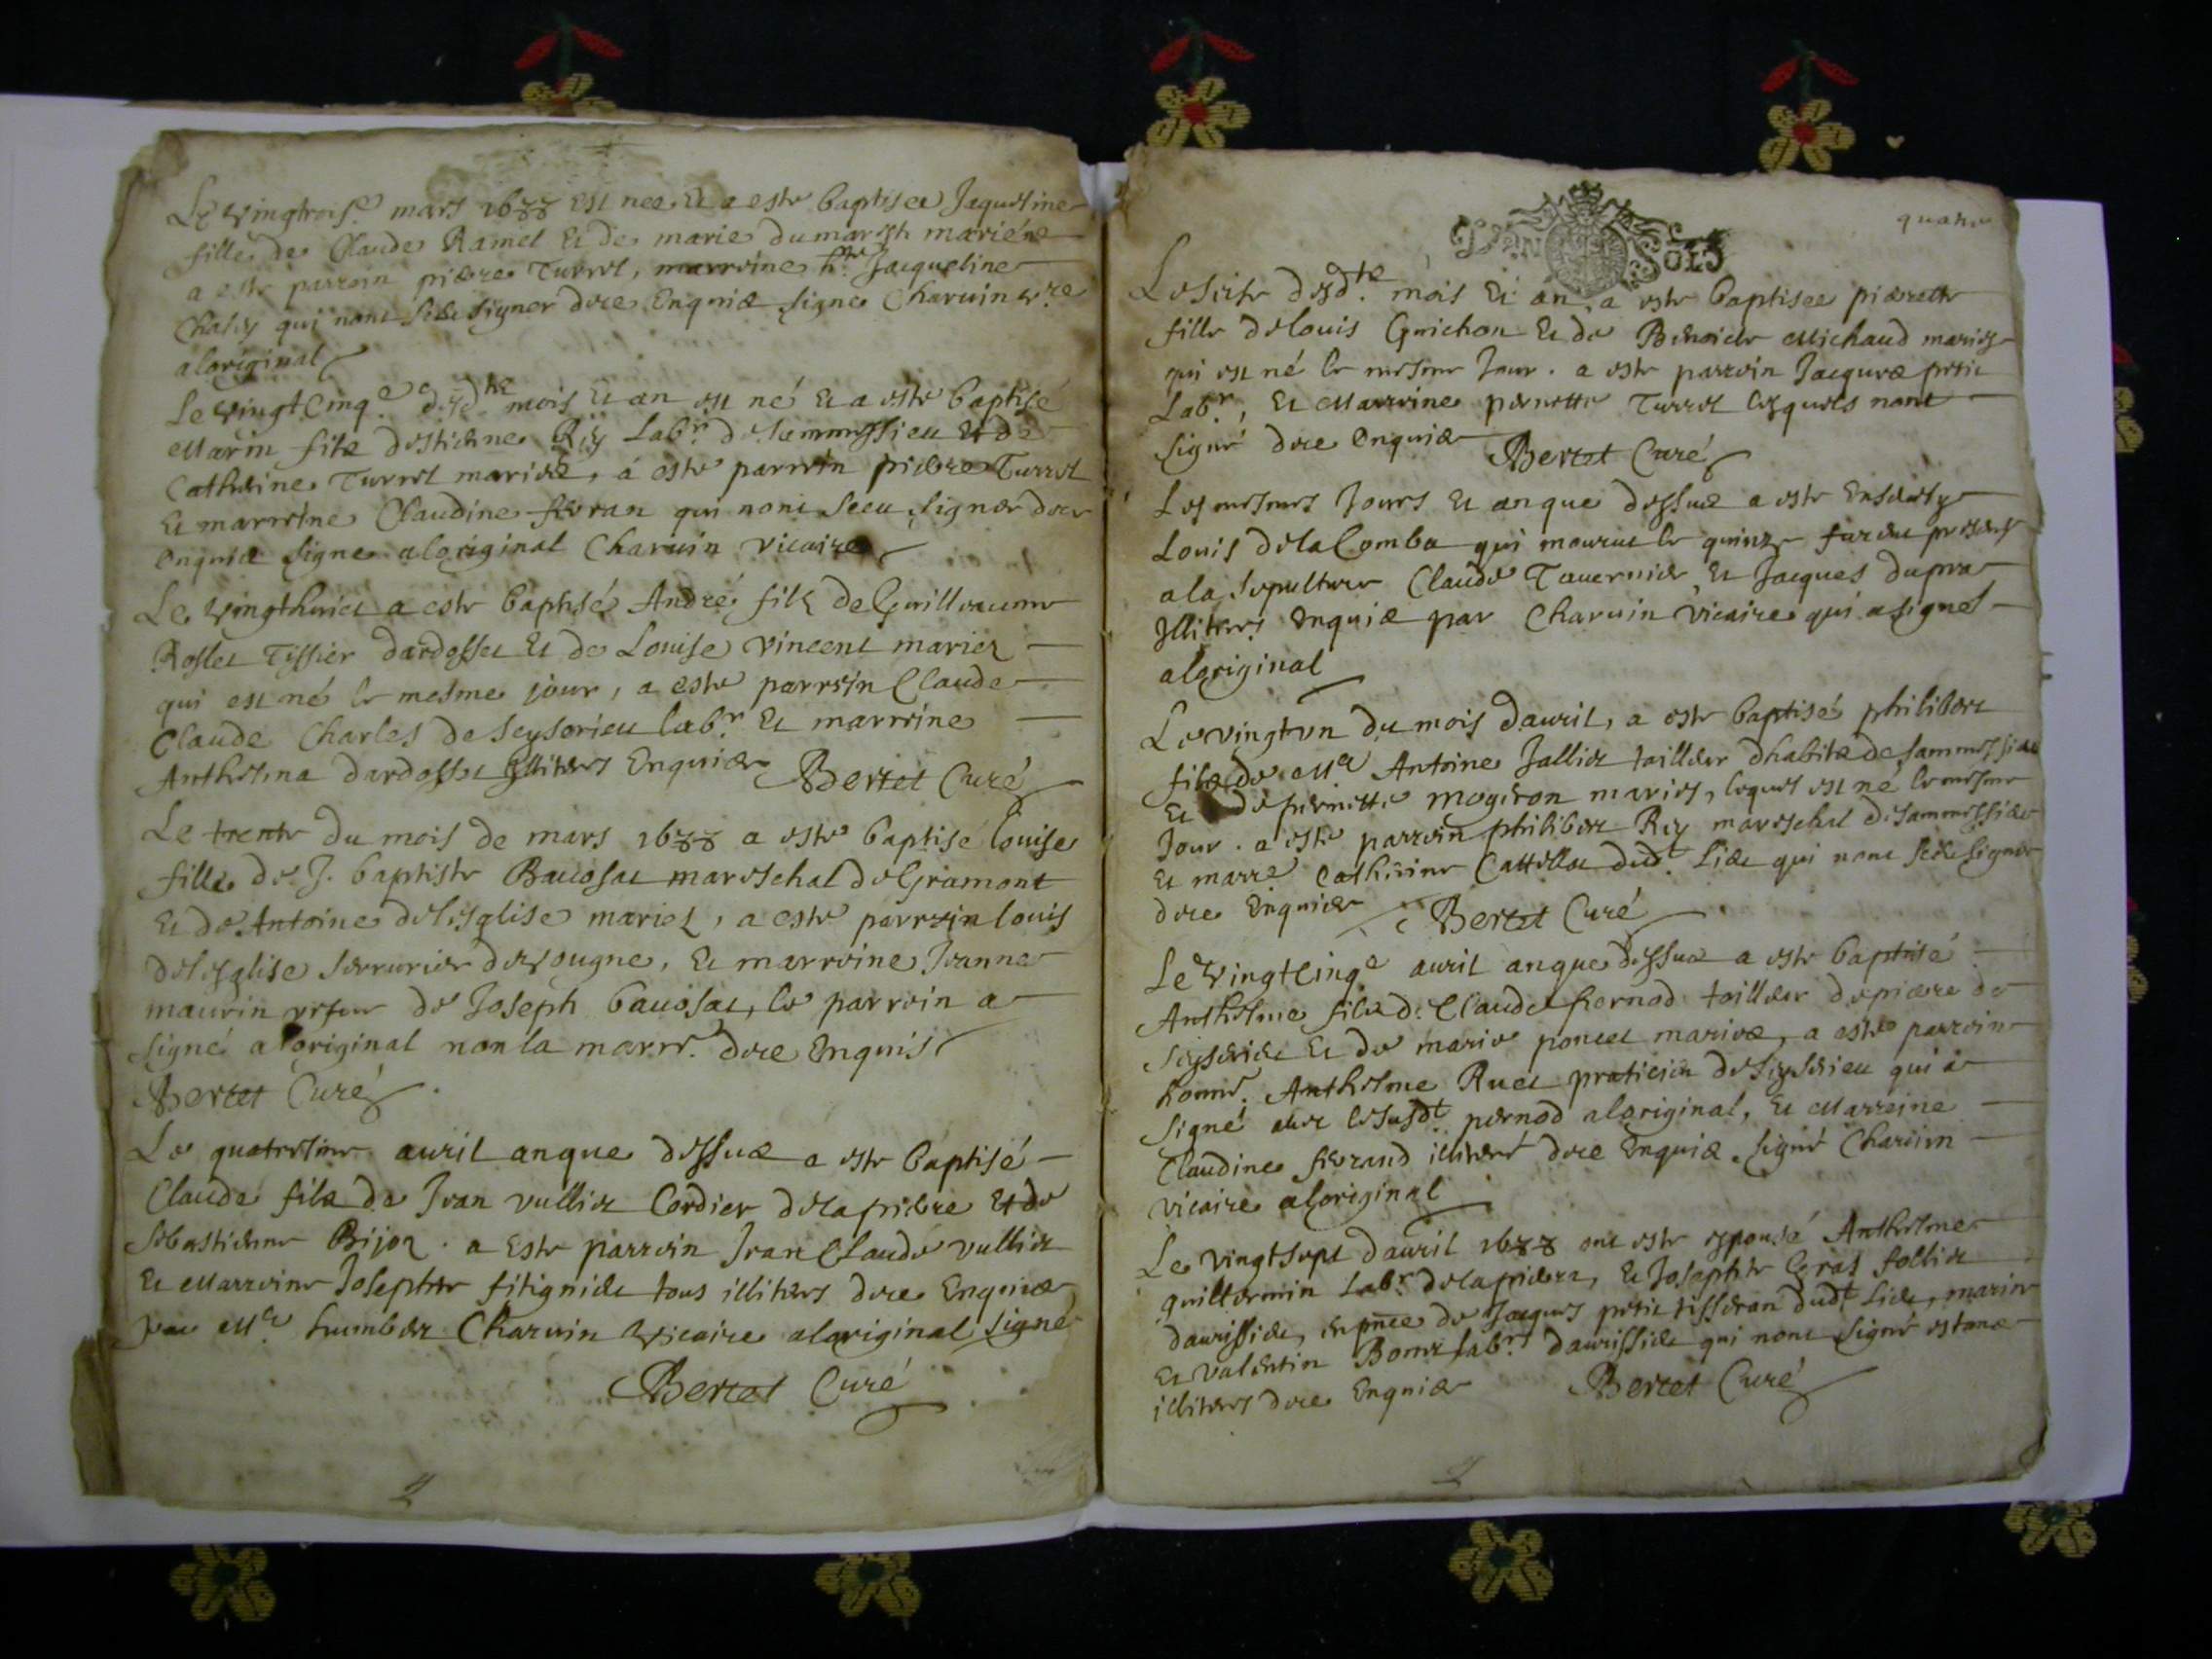 Le vingtrois.e mars 1688 est nee et a este baptisee Jaquеline
fille de Claude Ramel et de marie dumarest mariéz
a este parroin pierre Turrel, marroine h.te Jacqueline
Chaley qui nont seeu signer de ce Enquis signe Charuin v.re
aloriginal
Le vingtcinq.e desd.tz mois et an est né et a este baptisé
Marin filz destienne Rey Lab.r de Sammessieu et de
Catherine Turrel mariez, a este parroin pierre Turrel
et marroine Claudine feuran qui nont seeu signer de ce
Enquis signe aloriginal Charuin vicaire
Le vingthuict a este baptisé André filz de Guilloaume
Roslet Tissier dardosset et de Louise vincent mariez
qui est né le mesme jour, a este parroin Claude
Claude Charles de Seyserieu lab.r et marroine
Anthelma dardosset Illiteres Enquis Bertet Curé
Le trente du mois de mars 1688 a este baptisé Louise
fille de J. baptiste Bauosat mareschal de Gramont
et de Antoine delesglise mariez, a este parroin louis
delesglise serrurier de vougne, et marroine Jeanne
maurin vefue de Joseph bauosat, le parroin a
signé aloriginal non la marr.e de ce Enquis
Bertet Curé
Le quatriesme auril anque dessus a este baptisé
Claude filz de Jean vullier Cordier delapierre et de
Sebastienne Bijoz. a este parroin Jean Claude vullier
et Marroine Josephte fitignieu tous illiteres de ce Enquis
par M.e humber Charuin vicaire aloriginal signé
Bertet Curé
quatre
DAIN SOLS
Le sixte desd.tz mois et an a este baptisee pierrette
fille delouis Guichon et de Benoicte Michaud mariez
qui est né le mesme Jour. a este parroin Jacques petit
Lab.r, et Marroine pernette Turrel lesquels nont
signé de ce Enquis Bertet Curé
Les mesmes Jours et anque dessus a este Enseuely
Louis delaComba qui mourut le quinze furent presents
ala sepulture Claude Tauernier et Jacques dupra
Illiteres Enquis par Charuin vicaire qui a signé
aloriginal
Le vingtvn du mois dauril, a este baptisé philibert
filz de M.e Antoine Jallier tailleur dhabitz de Sammessieu
et de pernette mogeron mariez, lequel est né le mesme
Jour. a este parroin philibert Rey mareschal de Sammessieu
et marr.e Catherine Cattellat dud.t Lieu qui nont seeu signer
de ce Enquis Bertet Curé
Le vingtcinq.e auril anque dessus a este baptisé
Anthelme filz de Claude pernod tailleur de pierre de
Seyserieu et de marie poncet mariez, a este parroin
honn.e Anthelme Ruet praticien de Seyserieu qui a
signé auec lesusd.t pernod aloriginal, et Marreine
Claudine feurand illiteré de ce Enquis signé Charuin
vicaire aloriginal
Le vingtsept dauril 1688 ont este espousé Anthelme
quillermin Lab.r delapierre, et Josephte Gras follier
daurissieu, en pnce de Jacques petit tisseran dud.t Lieu, marin
et valentin Bomet lab.rs daurissieu qui nont signé estans
illiteres de ce Enquis Bertet Curé